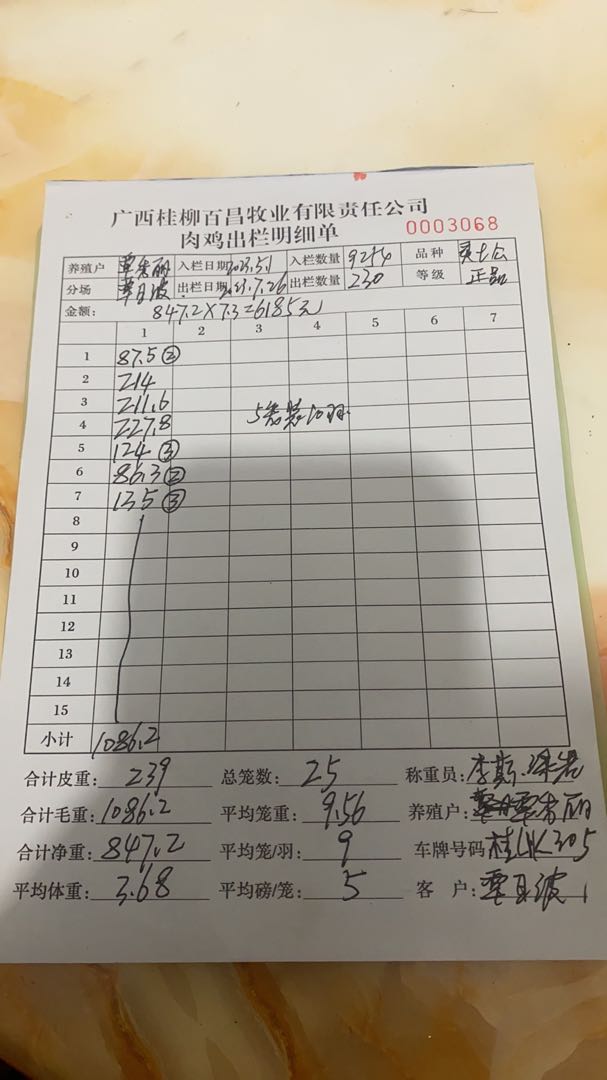 广西桂柳百昌牧业有限责任公司
肉鸡出栏明细单 0003068
养殖户 覃秀丽 入栏日期 2023.5.1 入栏数量 9254 品种
分场 覃日波 出栏日期 2023.7.26 出栏数量 230 等级 正品
金额: 847.2×7.3=6185元
1 2 3 4 5 6 7
1 87.5②
2 214
3 211.6
4 227.8 5卷装10羽
5 124③
6 86.3②
7 135③
8
9
10
11
12
13
14
15
小计 1086.2
合计皮重: 239 总笼数: 25 称重员: 李斯
合计毛重: 1086.2 平均笼重: 9.56 养殖户: 覃秀丽
合计净重: 847.2 平均笼/羽: 9 车牌号码 桂 305
平均体重: 3.68 平均磅/笼: 5 客 户: 覃日波